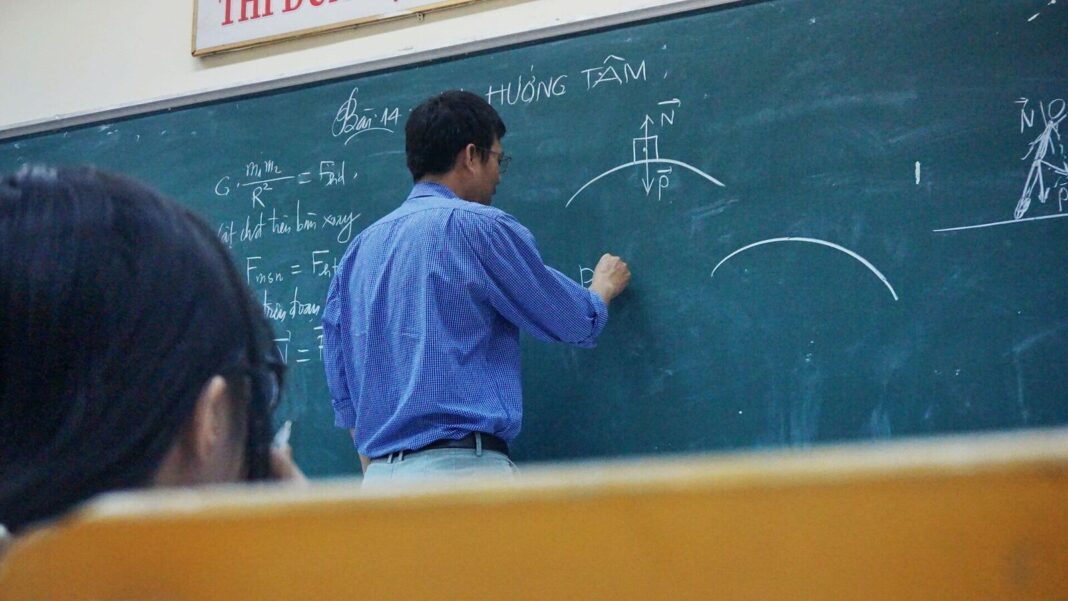 THI
Bài 14
HƯỚNG TÂM
G. m₁m₂/R² = Fhd
vật chất trên bàn xoay
Fmsn =
trên đoạn
=
N
P
P
N
P